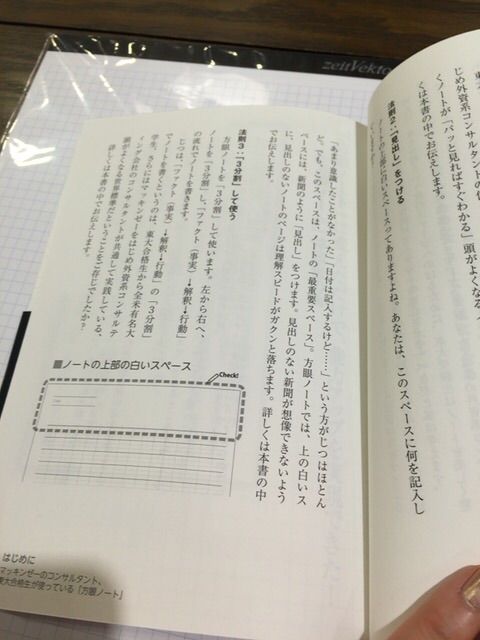 zeitVekto
じめ外資系コンサルタントの
くノートが「パッと見ればすぐわかる」頭がよくなる
くは本書の中でお伝えします。
法則2:「見出し」をつける
ノートの上部に白いスペースってありますよね。あなたは、このスペースに何を記入し
「あまり意識したことがなかった」「日付は記入するけど……」という方がじつはほとん
ど。でも、このスペースは、ノートの「最重要スペース」。方眼ノートでは、上の白いス
ペースには、新聞のように「見出し」をつけます。見出しのない新聞が想像できないよう
に、見出しのないノートのページは理解スピードがガクンと落ちます。詳しくは本書の中
でお伝えします。
法則3:「3分割」して使う
方眼ノートを「3分割」して使います。左から右へ、
ノートを「3分割」し、「ファクト(事実)→解釈→行動」
の流れでノートを書きます。
じつは、「ファクト(事実)→解釈→行動」の「3分割」
でノートを書くというのは、東大合格生から全米有名大
学生、さらにはマッキンゼーをはじめ外資系コンサルテ
ィング会社のコンサルタントが共通して実践している、
頭がよくなる世界標準だということをご存じでしたか?
詳しくは本書の中でお伝えします。
■ノートの上部の白いスペース
Check!
はじめに
マッキンゼーのコンサルタント、
東大合格生が使っている「方眼ノート」